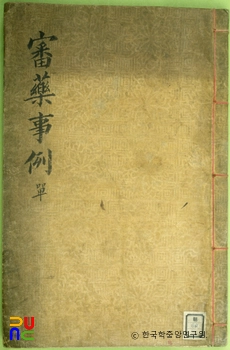 審藥事例 單
© 한국학중앙연구원